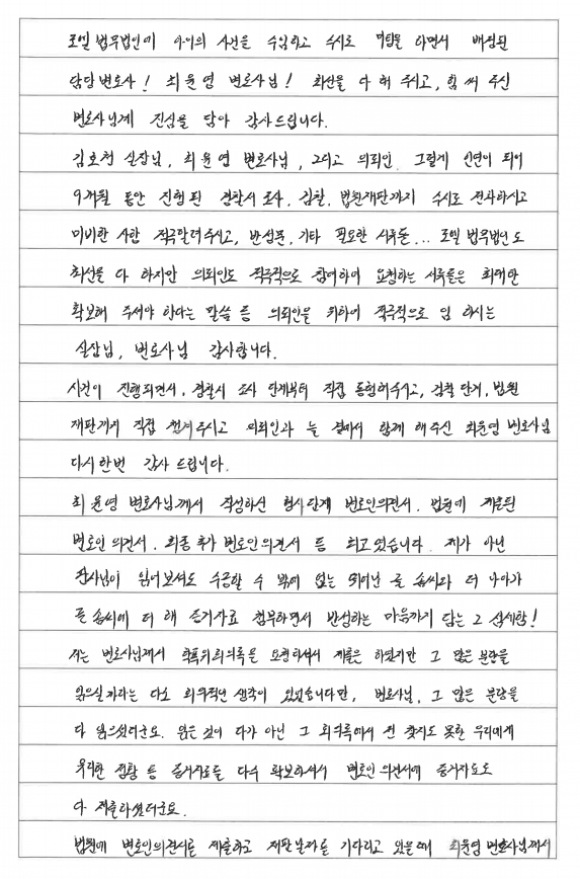 로엘 법무법인에 아이의 사건을 수임하고 수시로 미팅을 하면서 배정된
담당변호사! 최윤영 변호사님! 최선을 다 해 주시고, 힘 써 주신
변호사님께 진심을 담아 감사드립니다.
김호천 실장님, 최윤영 변호사님, 그리고 의뢰인. 그렇게 인연이 되어
9개월 동안 진행된 경찰서 조사, 검찰, 법원재판까지 수시로 전화하시고
미비한 사항 적극알려주시고, 반성문, 기타 필요한 서류들... 로엘 법무법인도
최선을 다 하지만 의뢰인도 적극적으로 참여하여 요청하는 서류들은 최대한
확보해 주셔야 한다는 말씀 등 의뢰인을 위하여 적극적으로 임 하시는
실장님, 변호사님 감사합니다.
사건이 진행되면서, 경찰서 조사 단계부터 직접 동행해주시고, 검찰 단계, 법원
직접 주시고 의뢰인과 늘 함께 해주신 최윤영 변호사님
다시한번 감사 드립니다.
최윤영 변호사님께서 작성하신 형사단계 변호인의견서. 법원에 제출된
변호인 의견서, 최종 추가 변호인의견서 등 최고였습니다. 제가 아닌
판사님이 읽어보셔도 수긍할 수 밖에 없는 뛰어난 글 솜씨와 더 나아가
글 솜씨에 더 해 증거자료 첨부하면서 반성하는 마음까지 담는 그 섬세함!
저는 변호사님께서 학폭위회의록을 요청하셔서 제출은 하였지만 그 많은 분량을
읽으실까라는 다소 회의적인 생각이 있었습니다만, 변호사님, 그 많은 분량을
다 읽으셨더군요. 읽은 것이 다가 아닌 그 회의록에서 전 찾지도 못한 우리에게
유리한 정황 등 증거자료를 다수 확보하셔서 변호인 의견서에 증거자료도
다 제출하셨더군요.
법원에 변호인의견서를 제출하고 재판날짜를 기다리고 있을때 최윤영 변호사님께서